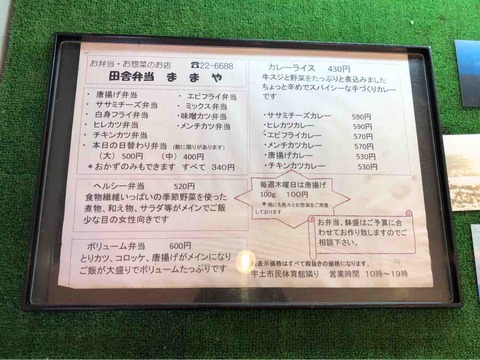 お弁当・お惣菜のお店　☎22-6688
田舎弁当　ままや
・唐揚げ弁当
・ササミチーズ弁当
・白身フライ弁当
・ヒレカツ弁当
・チキンカツ弁当
・エビフライ弁当
・ミックス弁当
・味噌カツ弁当
・メンチカツ弁当
・本日の日替わり弁当（数に限りがあります）
（大）500円　（中）400円
＊おかずのみもできます　すべて 340円
ヘルシー弁当　520円
食物繊維いっぱいの季節野菜を使った
煮物、和え物、サラダ等がメインでご飯
少な目の女性向きです
ボリューム弁当　600円
とりカツ、コロッケ、唐揚げがメインになり
ご飯が大盛りでボリュームたっぷりです
カレーライス　430円
牛スジと野菜をたっぷりと煮込みました
ちょっと辛めでスパイシーな手づくりカレー
です
・ササミチーズカレー　590円
・ヒレカツカレー　590円
・エビフライカレー　570円
・メンチカツカレー　570円
・唐揚げカレー　530円
・チキンカツカレー　530円
毎週木曜日は唐揚げ
100g　100円
＊他にも色々とお惣菜をご用意
しております
お弁当、鉢盛はご予算に合
わせてお作り致しますのでご
相談下さい。
お表示価格はすべて税抜きの価格になります。
宇土市民体育館隣り　営業時間　10時～19時